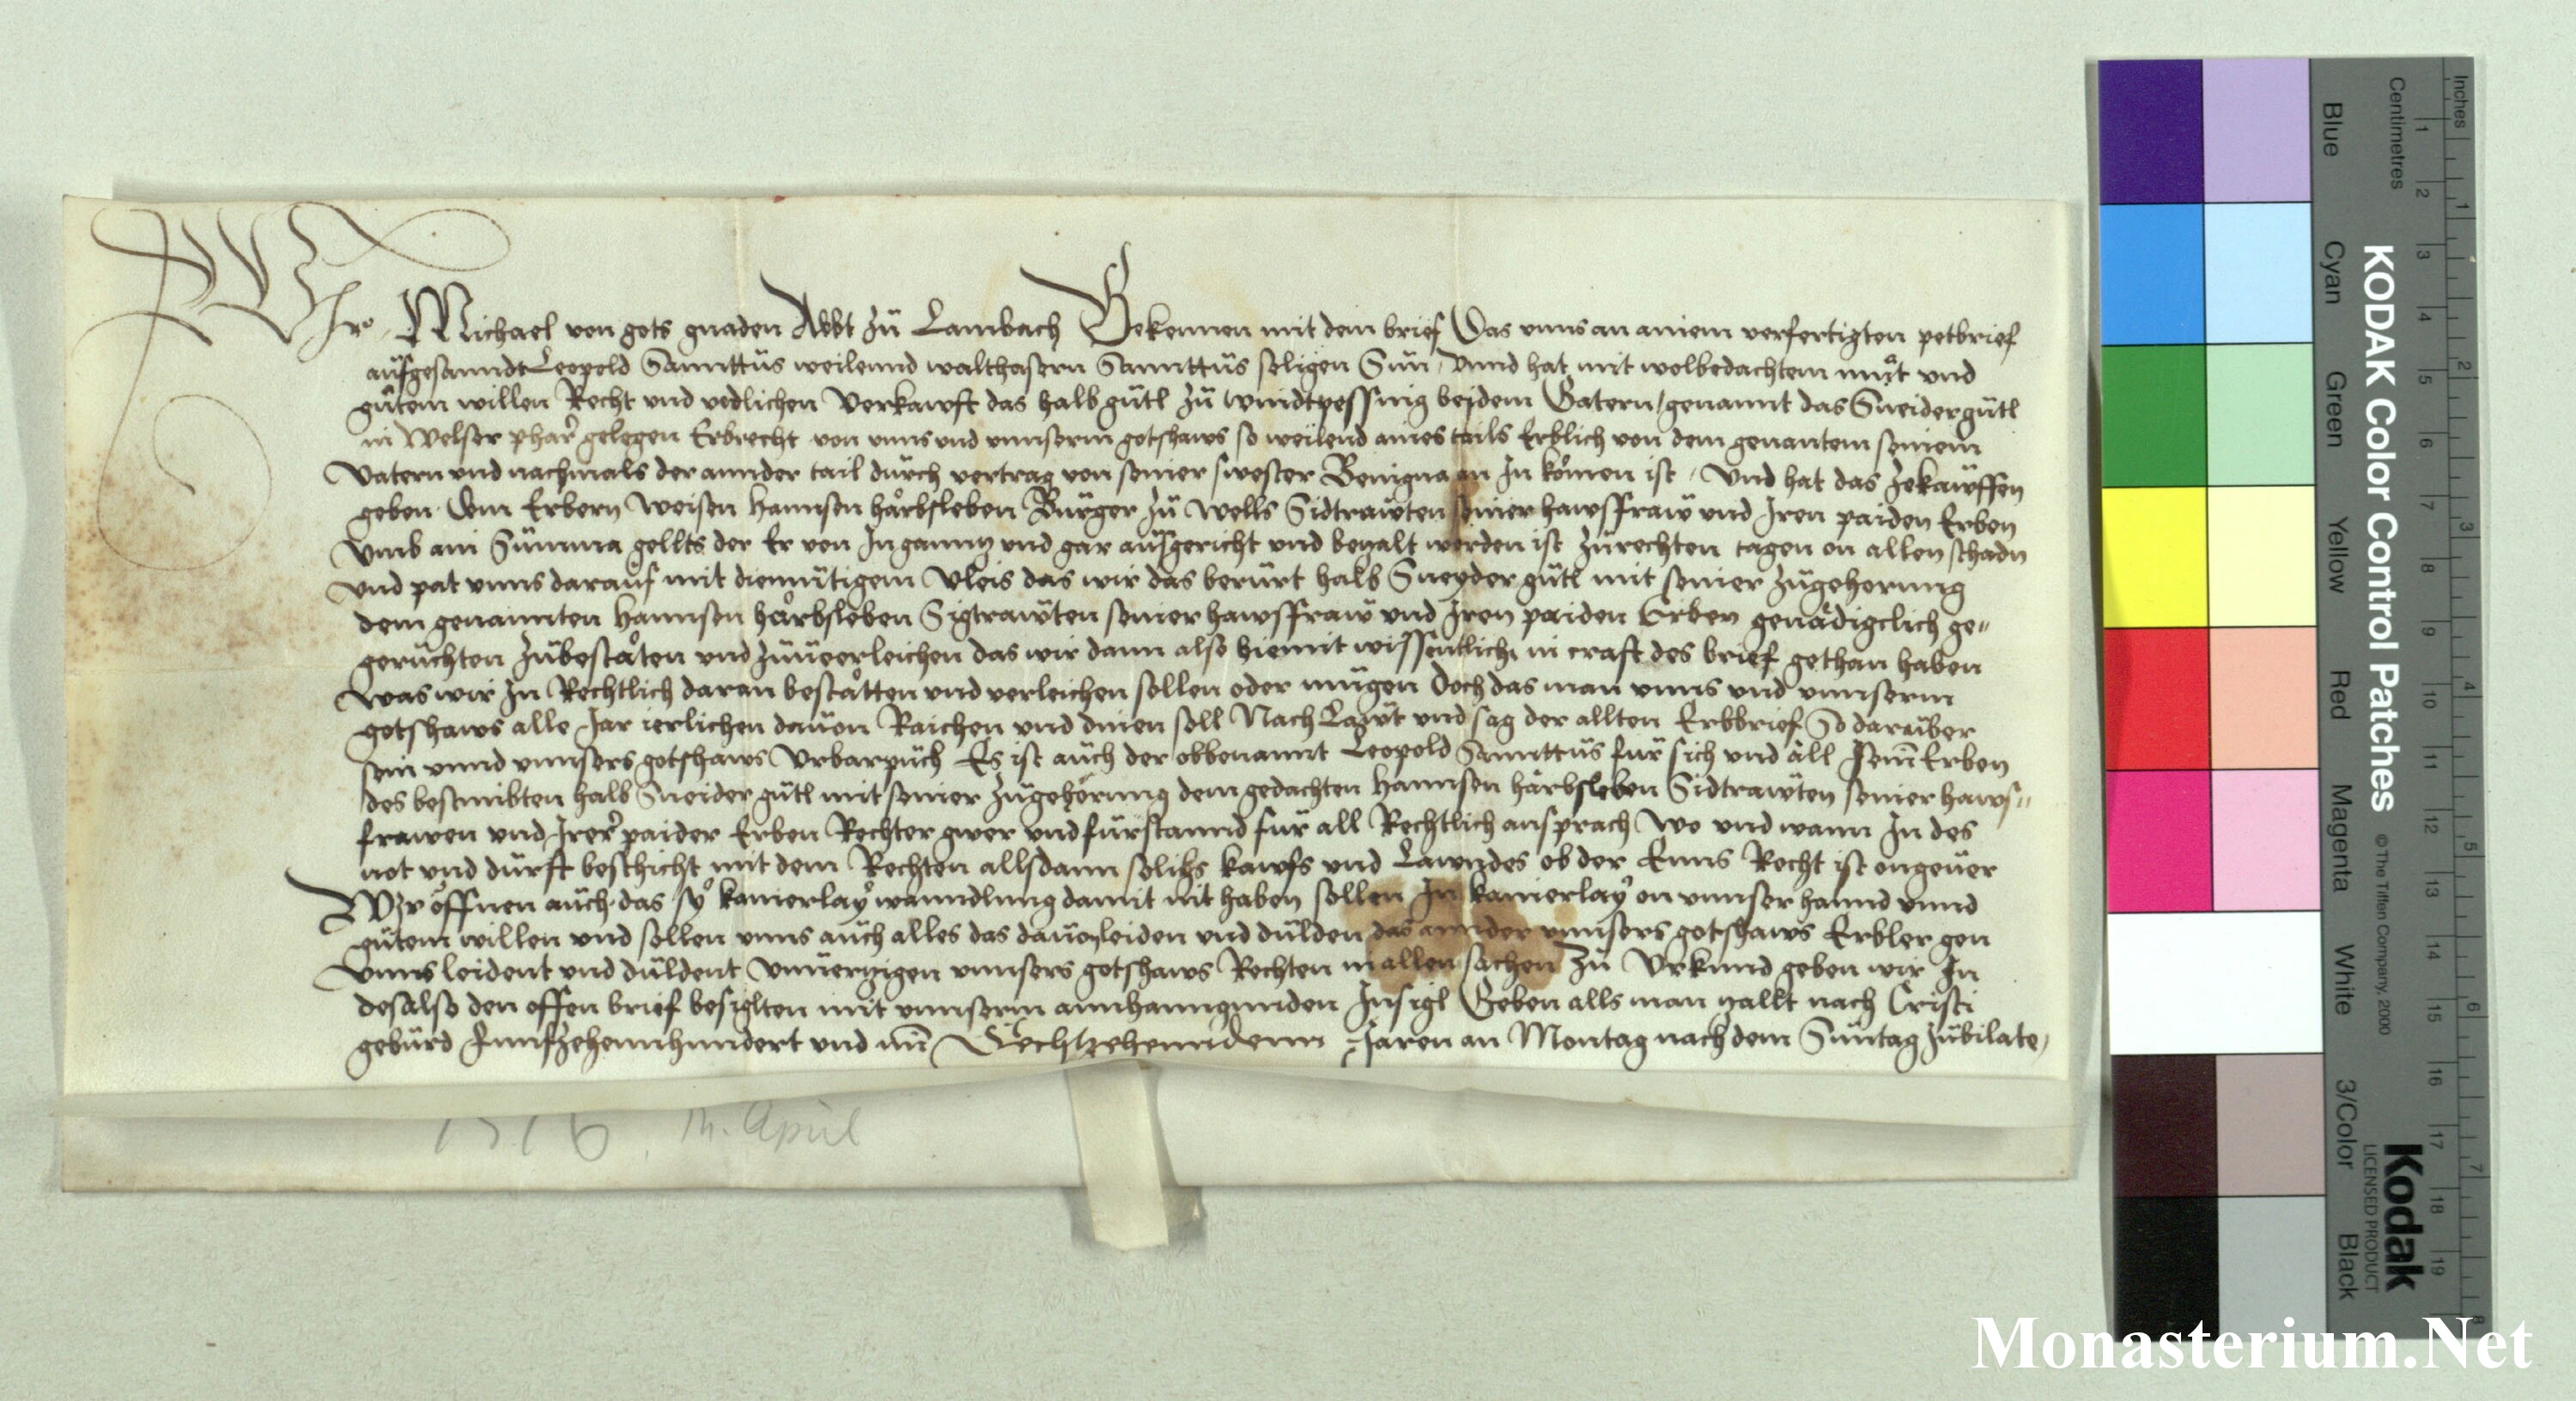 Wir Michael von gots gnaden Abbt zü Lambach Bekennen mit dem brief Das vnns an ainem verfertigten petbrief
aüfgesanndt Leopold Sannttüs weilennd walthasern Sannttüs seligen Sün, vnnd hat mit wolbedachtem müt vnd
gütem willen Recht vnd redlichen verkawft das halb gütl zü windtpessing bei dem Gatern / genannt das Sneidergütl
in Welser pharr gelegen Erbrecht von vnns vnd vnnserm gotshaws so weilend aines tails Erblich von dem genantem seinem
Vatern vnd nachmals der annder tail dürch vertrag von seiner swester Benigna an In komen ist / Vnd hat das zekawffen
geben Dem Erbern Weisen Hannsen hårbsleben Burger zü Wells Sidtrawten seiner hawsfraw vnd Iren paiden Erben
Vmb ain Sümma gellts der Er von In gannz vnd gar aüsgericht vnd bezalt worden ist zürechten tagen on allen schadn
vnd pat vnns daraüf mit diemütigem Vleis das wir das berürt halb Sneyder gütl mit seiner zügehorung
dem genannten Hannsen hårbsleben Sigtrawten seiner hawsfraw vnd Iren paiden Erben genådigclich ge„
gerüchten zübeståten vnd züuerleichen das wir dann also hiemit wissentlich in craft des brief gethan haben
was wir In Rechtlich daran beståtten vnd verleichen sollen oder mügen Doch das man vnns vnd vnnserm
gotshaws alle Jar ierlichen dauon Raichen vnd dinen soll Nach Lawt vnd sag der allten Erbbrief So darüber
sein vnnd vnnsers gotshaws Vrbarpüch Es ist aüch der obbenannt Leopold Sannttüs für sich vnd all sein Erben
des bestimbten halb Sneider gütl mit seiner zügehörung dem gedachten Hannsen hårbsleben Sidtrawten seiner haws„
frawen vnd Irer paider Erben Rechter gwer vnd fürstannd für all Rechtlich ansprach Wo vnd wann In des
not vnd dürft beschicht mit dem Rechten allsdann solihs kawfs vnd Lanndes ob der Enns Recht ist ongeuer
Wir öffnen aüch das sy kainerlay wanndlung damit nit haben sollen In kainerlay on vnnser hannd vnnd
gütem willen vnd sollen vnns aüch alles das dauon leiden vnd dülden das annder vnnsers gotshaws Erbler gen
vnns leident vnd düldent Vnüerzigen vnnsers gotshaws Rechten in allen sachen Zü Vrkünd geben wir In
des also den offen brief besiglten mit vnnserm annhanngunden Insigl Geben alls man zallt nach Cristi
gebürd Funfzehennhundert vnd im Sechtzehenndenn Jaren an Montag nach dem Süntag Jübilate
1516 14. April
KODAK Color Control Patches
© The Tiffen Company, 2000
Kodak
LICENSED PRODUCT
Inches 1 2 3 4 5 6 7 8
Centimetres 1 2 3 4 5 6 7 8 9 10 11 12 13 14 15 16 17 18 19
Blue Cyan Green Yellow Red Magenta White 3/Color Black
Monasterium.Net